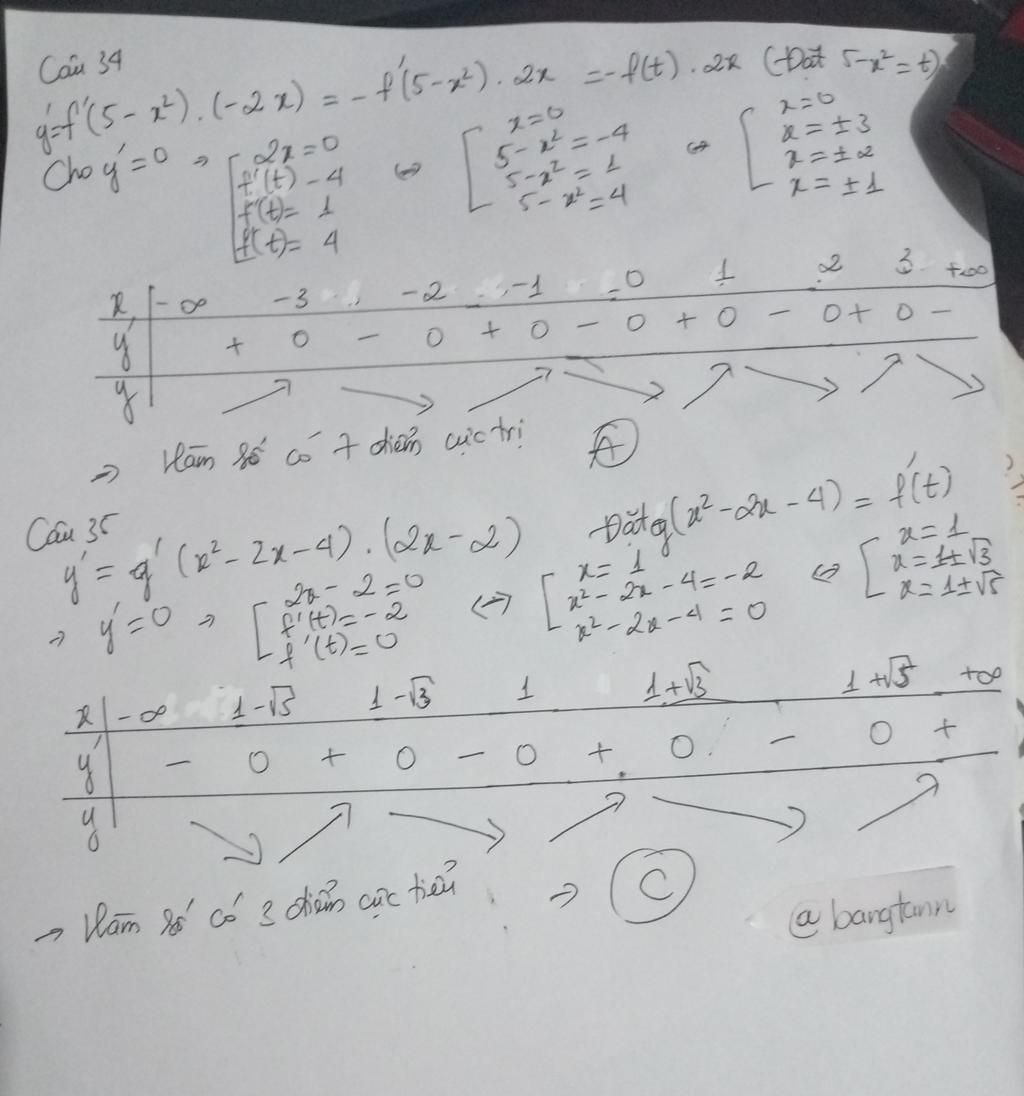 Câu 34
y'=f'(5-x²).(-2x) = -f'(5-x²).2x = -f(t).2x (Đặt 5-x²=t)
Cho y'=0 → [ 2x=0 ⇔ [ x=0 ⇔ [ x=0
f'(t) - 4 5-x²=-4 x=±3
f'(t)= 1 5-x²=1 x=±2
f(t)= 4 5-x²=4 x=±1
x -∞ -3 -2 -1 0 1 2 3 +∞
y' + 0 - 0 + 0 - 0 + 0 - 0 + 0 -
y ↗ ↘ ↗ ↘ ↗ ↘ ↗ ↘
⇒ Hàm số có 7 điểm cực trị A
Câu 35
y' = g'(x²-2x-4).(2x-2) Đặt g(x²-2x-4) = f'(t)
→ y'=0 → [ 2x-2=0 ⇔ [ x=1 ⇔ [ x=1
f'(t)=-2 x²-2x-4=-2 x=1±√3
f'(t)=0 x²-2x-4=0 x=1±√5
x -∞ 1-√5 1-√3 1 1+√3 1+√5 +∞
y' - 0 + 0 - 0 + 0 - 0 +
y ↘ ↗ ↘ ↗ ↘ ↗
→ Hàm số có 3 điểm cực tiểu ⇒ C
@bangtann